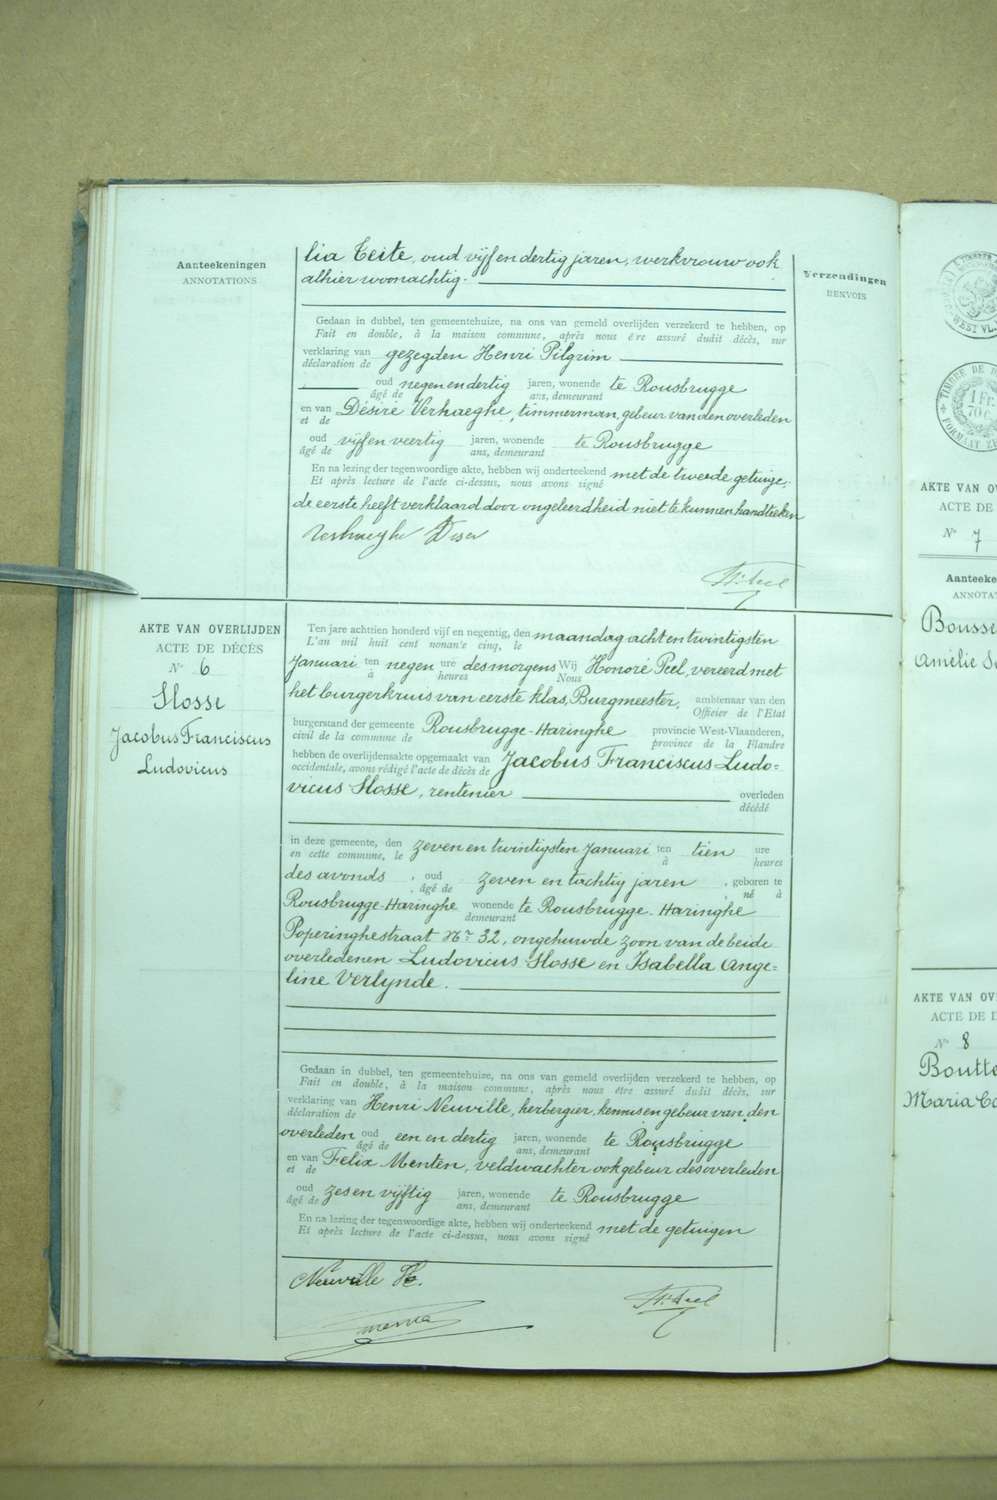 Aanteekeningen
ANNOTATIONS
Verzendingen
RENVOIS
lia Teite, oud vijf en dertig jaren, werkvrouw ook
alhier woonachtig.
Gedaan in dubbel, ten gemeentehuize, na ons van gemeld overlijden verzekerd te hebben, op
Fait en double, à la maison commune, après nous être assuré dudit décès, sur
verklaring van gezegden Henri Pilgrim
déclaration de
oud negen en dertig jaren, wonende te Rousbrugge
âgé de ans, demeurant
en van Désiré Verhaeghe, timmerman, gebeur van den overleden
et de
oud vijf en veertig jaren, wonende te Rousbrugge
âgé de ans, demeurant
En na lezing der tegenwoordige akte, hebben wij onderteekend met de tweede getuige,
Et après lecture de l'acte ci-dessus, nous avons signé
de eerste heeft verklaard door ongeleerdheid niet te kunnen handteeken
Verhaeghe Desir
Hre Peel
AKTE VAN OVERLIJDEN
ACTE DE DÉCÈS
N° 6
Slosse
Jacobus Franciscus
Ludovicus
Ten jare achtien honderd vijf en negentig, den maandag acht en twintigsten
L'an mil huit cent nonante cinq, le
Januari ten negen ure des morgens Wij Honoré Peel, vereerd met
à heures Nous
het burgerkruis van eerste klas, Burgmeester, ambtenaar van den
Officier de l'Etat
burgerstand der gemeente Rousbrugge-Haringhe provincie West-Vlaanderen,
civil de la commune de province de la Flandre
hebben de overlijdensakte opgemaakt van Jacobus Franciscus Ludo=
occidentale, avons rédigé l'acte de décès de
vicus Slosse, rentenier overleden
décédé
in deze gemeente, den zeven en twintigsten Januari ten tien ure
en cette commune, le à heures
des avonds, oud zeven en tachtig jaren, geboren te
âgé de né à
Rousbrugge-Haringhe wonende te Rousbrugge-Haringhe
demeurant
Poperinghestraat Nr 32, ongehuwde zoon van de beide
overledenen Ludovicus Slosse en Isabella Ange=
line Verlynde.
Gedaan in dubbel, ten gemeentehuize, na ons van gemeld overlijden verzekerd te hebben, op
Fait en double, à la maison commune, après nous être assuré dudit décès, sur
verklaring van Henri Neuville, herbergier, kennis en gebeur van den
déclaration de
overleden oud een en dertig jaren, wonende te Rousbrugge
âgé de ans, demeurant
en van Felix Menten, veldwachter ook gebeur des overleden
et de
oud zes en vijftig jaren, wonende te Rousbrugge
âgé de ans, demeurant
En na lezing der tegenwoordige akte, hebben wij onderteekend met de getuigen
Et après lecture de l'acte ci-dessus, nous avons signé
Neuville H.
Hre Peel
AKTE VAN OV
ACTE DE
N° 7
Aanteeke
ANNOTAT
Bousse
Amélie
AKTE VAN OV
ACTE DE D
N° 8
Boutte
Maria